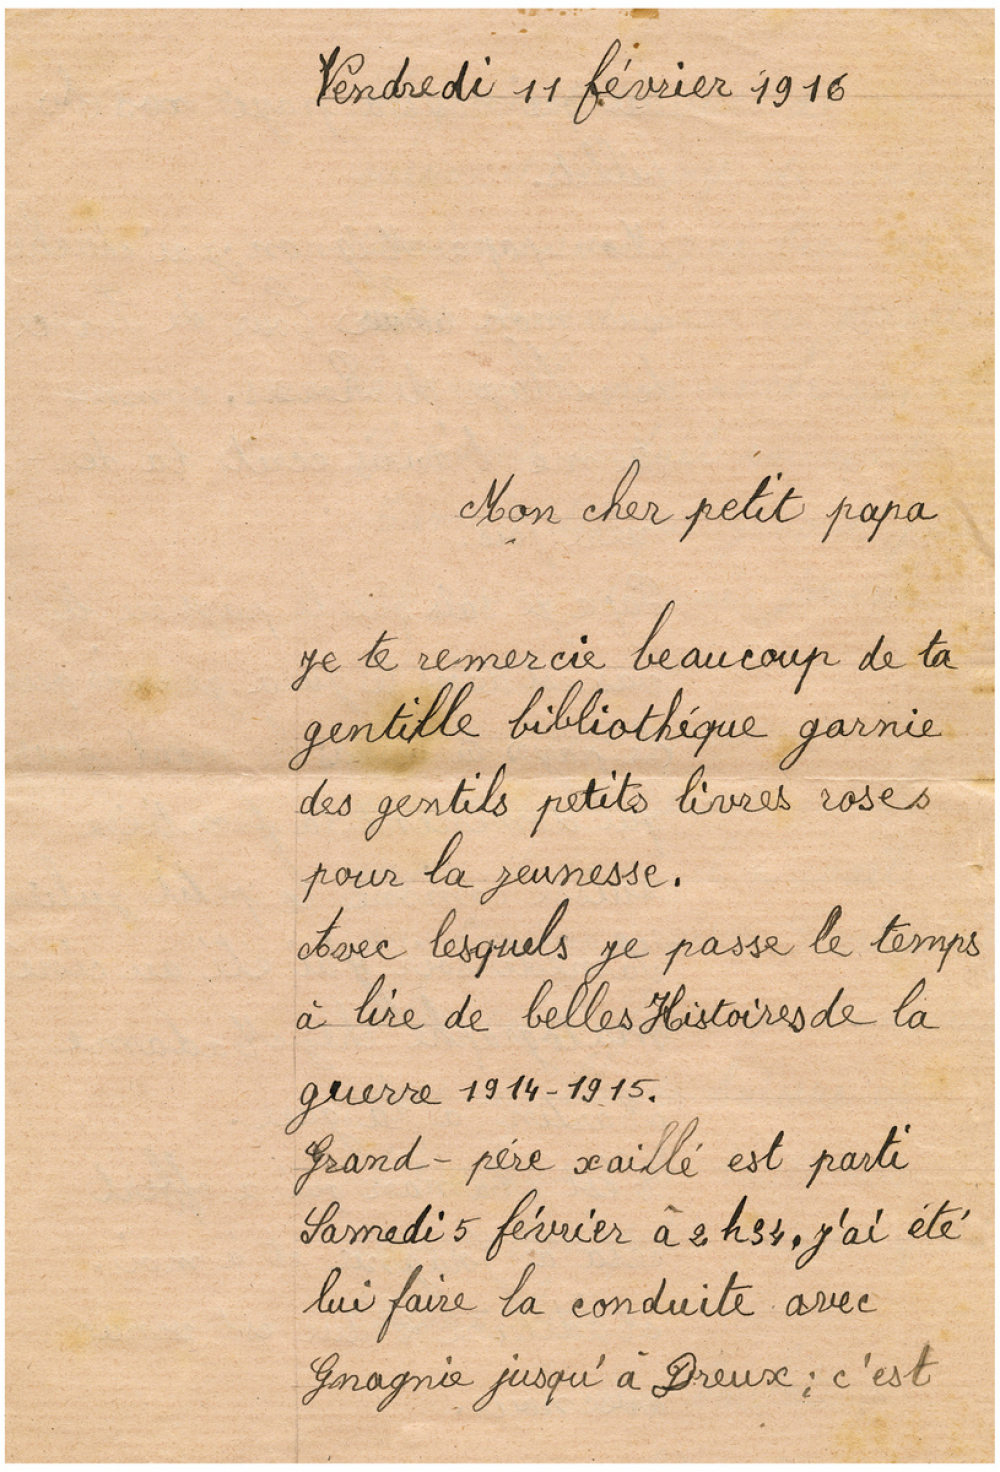 Vendredi 11 février 1916
Mon cher petit papa
je te remercie beaucoup de ta
gentille bibliothéque garnie
des gentils petits livres roses
pour la jeunesse.
Avec lesquels je passe le temps
à lire de belles Histoires de la
guerre 1914-1915.
Grand-pére xaillé est parti
Samedi 5 février à 2h34. j'ai été
lui faire la conduite avec
Gnagnie jusqu'à Dreux; c'est